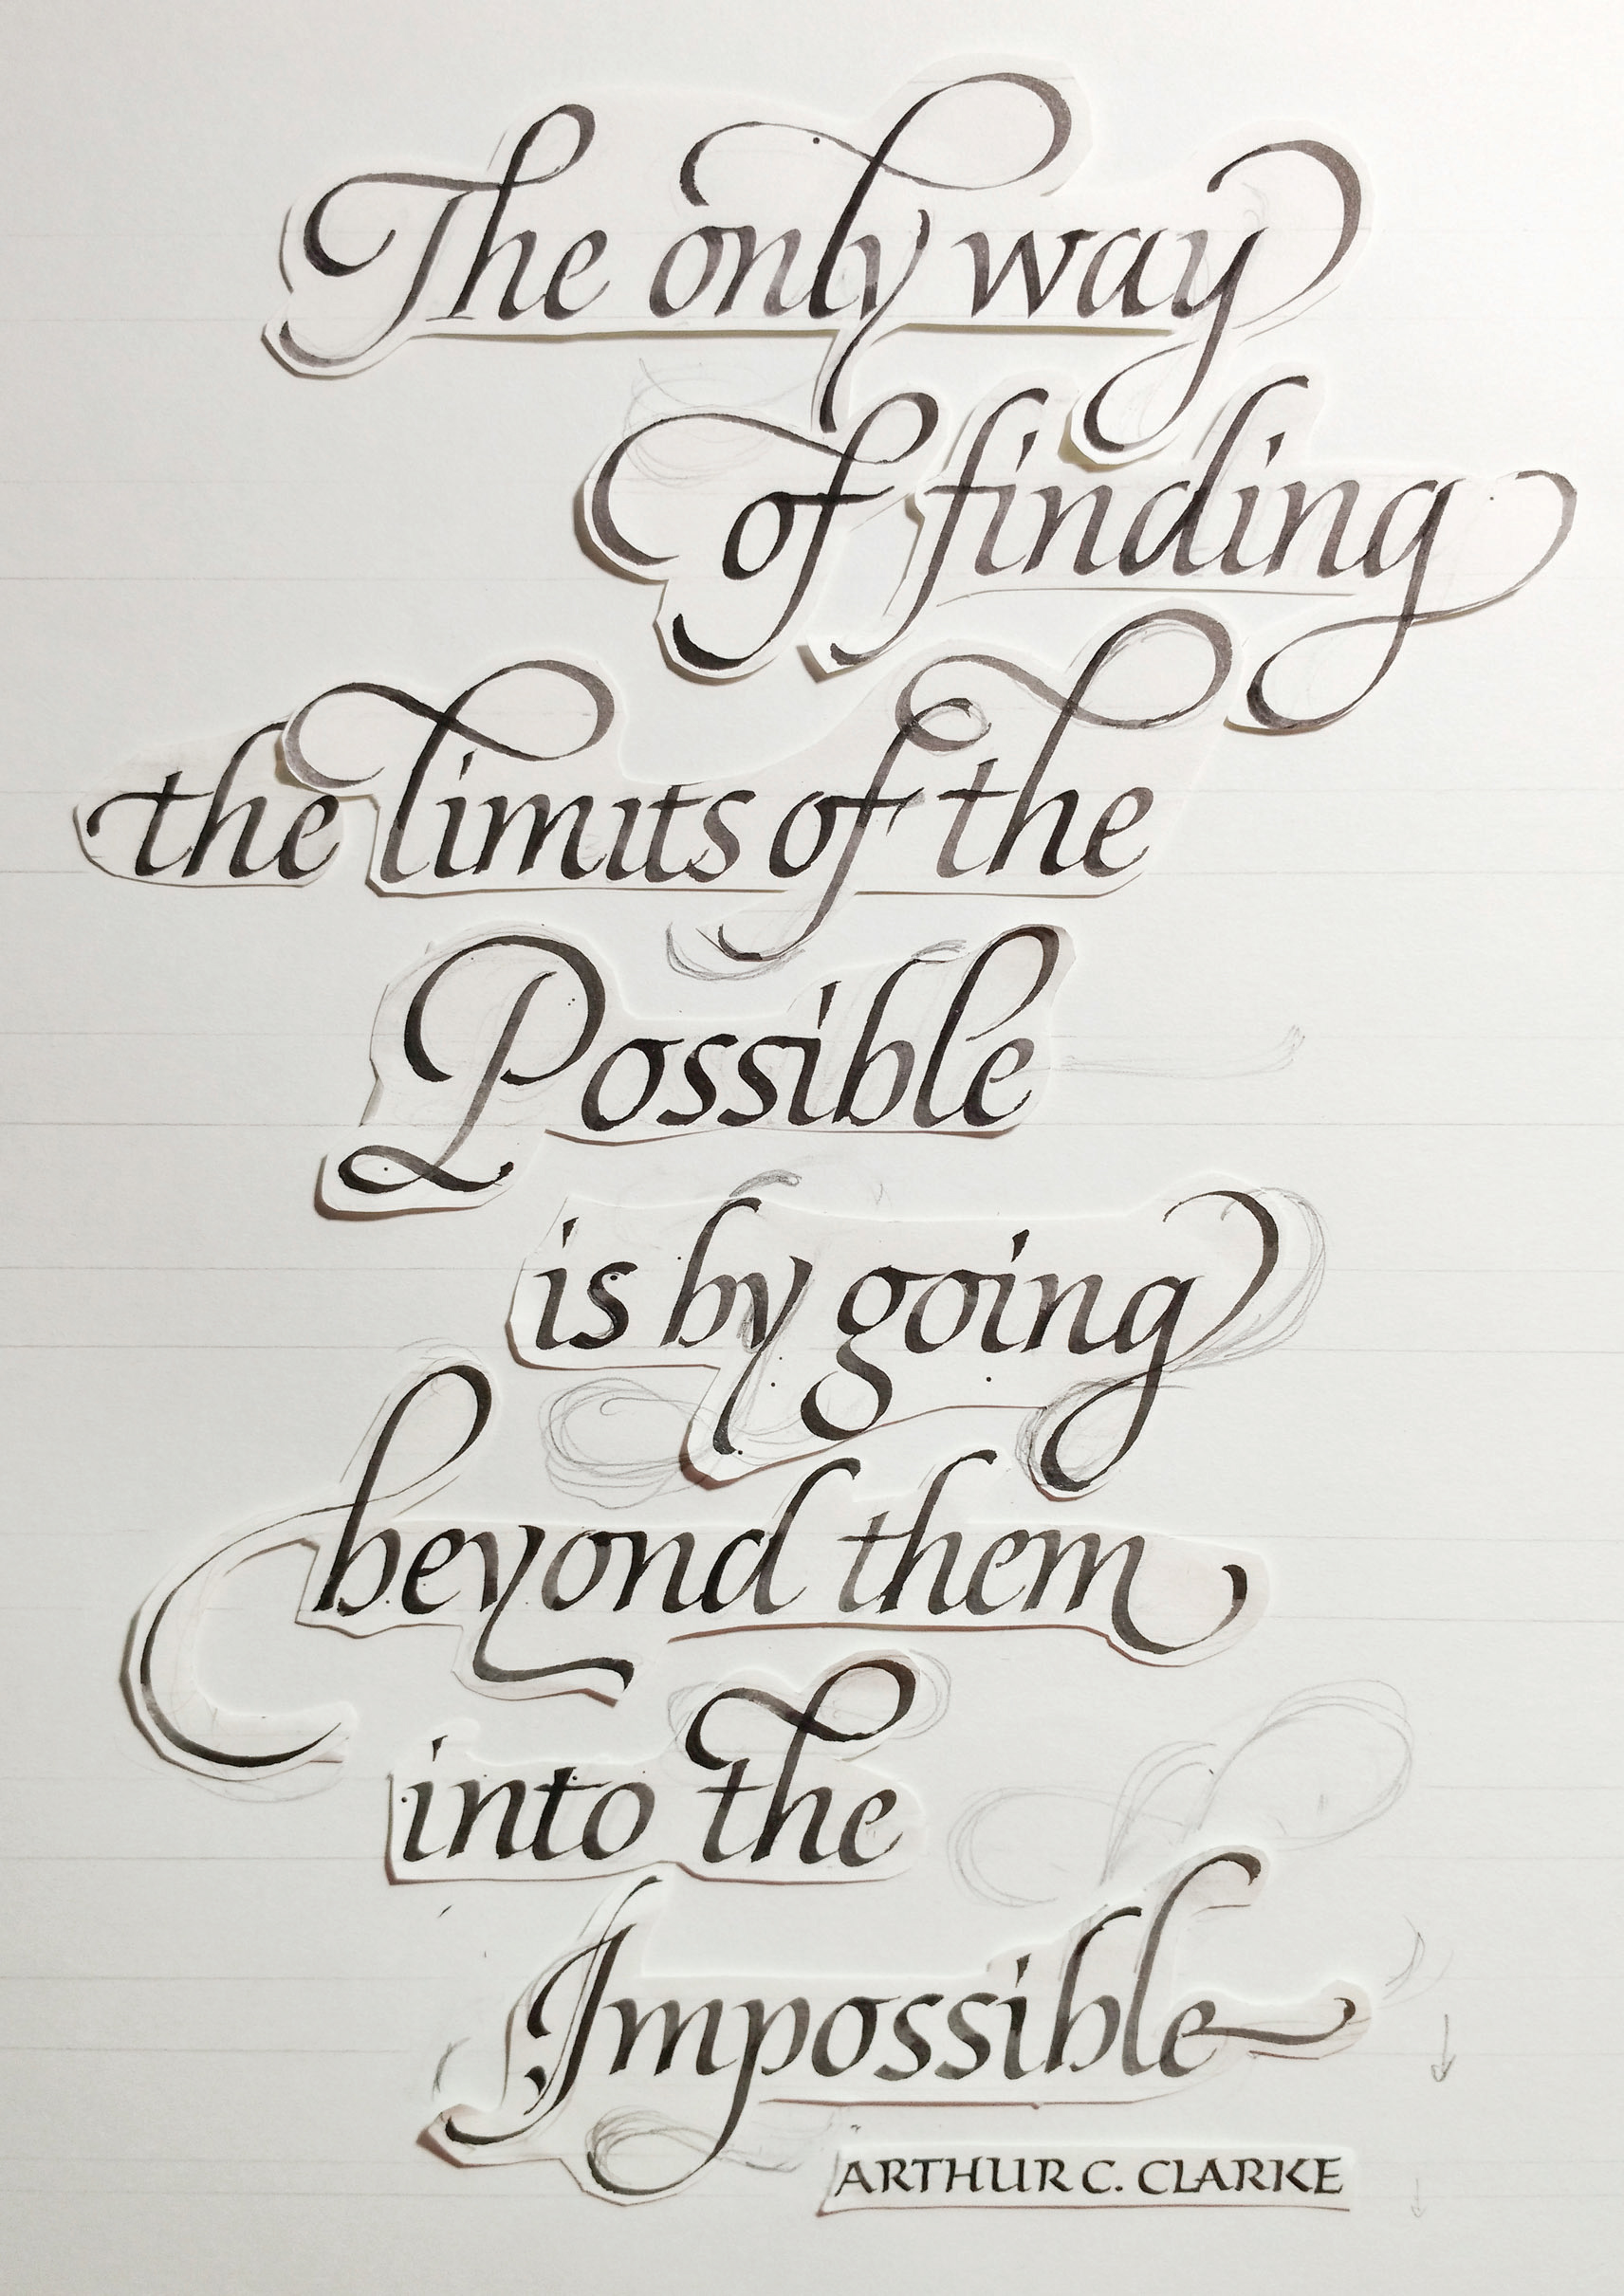 The only way
of finding
the limits of the
Possible
is by going
beyond them
into the
Impossible
ARTHUR C. CLARKE